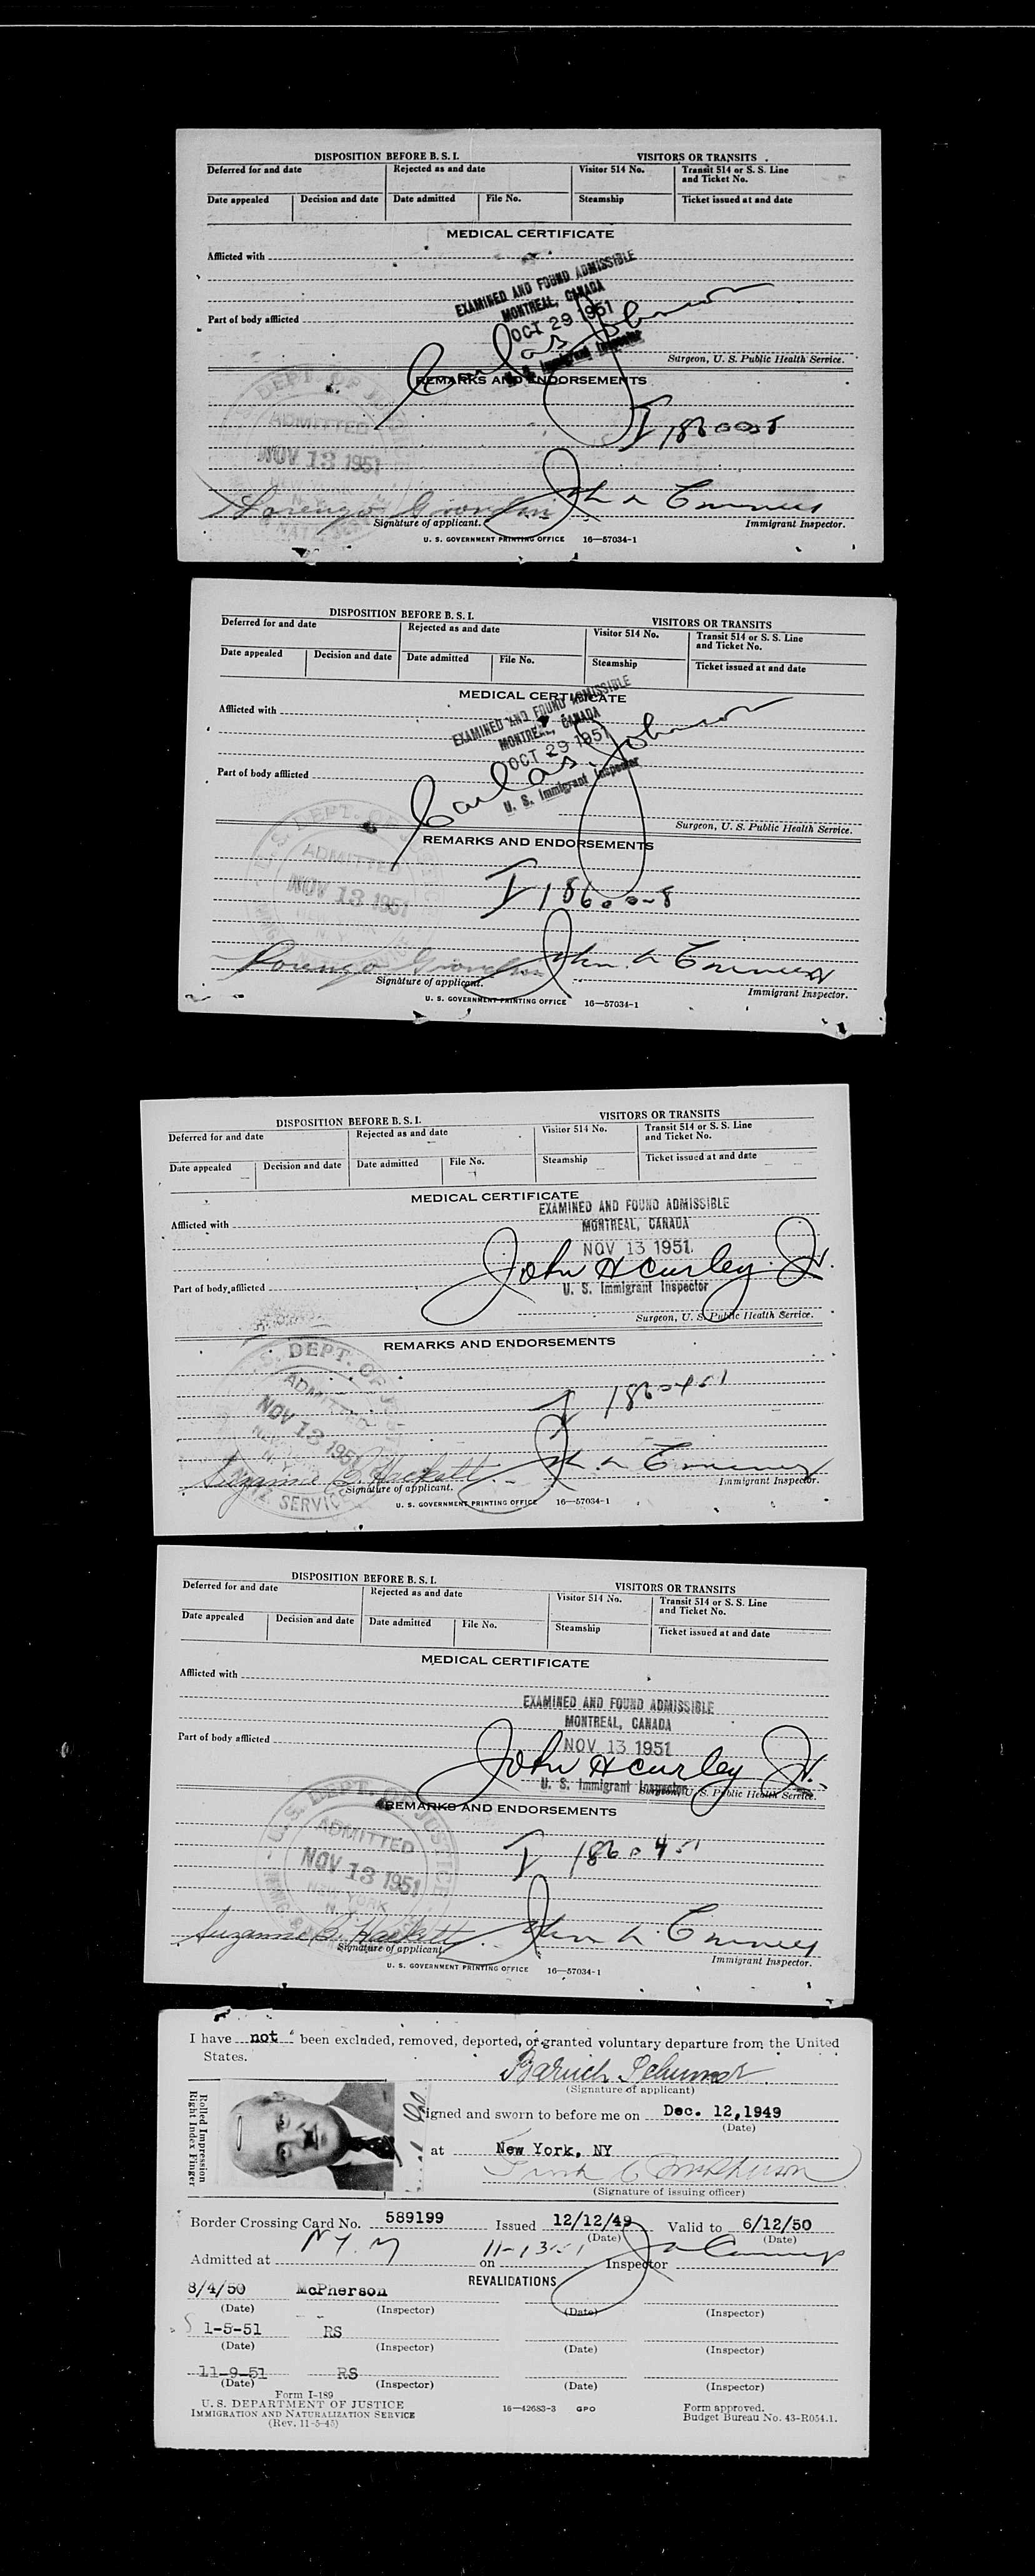 DISPOSITION BEFORE B. S. I. VISITORS OR TRANSITS
Deferred for and date Rejected as and date Visitor 514 No. Transit 514 or S. S. Line and Ticket No.
Date appealed Decision and date Date admitted File No. Steamship Ticket issued at and date
MEDICAL CERTIFICATE
Afflicted with
EXAMINED AND FOUND ADMISSIBLE
MONTREAL, CANADA
OCT 29 1951
U. S. Immigrant Inspector
Part of body afflicted
Carl as. Johnson
Surgeon, U. S. Public Health Service.
REMARKS AND ENDORSEMENTS
U. S. DEPT. OF JUSTICE
ADMITTED
NOV 13 1951
NEW YORK
N. Y.
Signature of applicant.
Immigrant Inspector.
U. S. GOVERNMENT PRINTING OFFICE 16—57034-1
DISPOSITION BEFORE B. S. I. VISITORS OR TRANSITS
Deferred for and date Rejected as and date Visitor 514 No. Transit 514 or S. S. Line and Ticket No.
Date appealed Decision and date Date admitted File No. Steamship Ticket issued at and date
MEDICAL CERTIFICATE
Afflicted with
EXAMINED AND FOUND ADMISSIBLE
MONTREAL, CANADA
OCT 29 1951
U. S. Immigrant Inspector
Part of body afflicted
Carl as. Johnson
Surgeon, U. S. Public Health Service.
REMARKS AND ENDORSEMENTS
U. S. DEPT. OF JUSTICE
ADMITTED
NOV 13 1951
NEW YORK
N. Y.
Signature of applicant.
Immigrant Inspector.
U. S. GOVERNMENT PRINTING OFFICE 16—57034-1
DISPOSITION BEFORE B. S. I. VISITORS OR TRANSITS
Deferred for and date Rejected as and date Visitor 514 No. Transit 514 or S. S. Line and Ticket No.
Date appealed Decision and date Date admitted File No. Steamship Ticket issued at and date
MEDICAL CERTIFICATE
Afflicted with
EXAMINED AND FOUND ADMISSIBLE
MONTREAL, CANADA
NOV 13 1951
John H Curley Jr.
U. S. Immigrant Inspector
Part of body afflicted
Surgeon, U. S. Public Health Service.
REMARKS AND ENDORSEMENTS
U. S. DEPT. OF JUSTICE
ADMITTED
NOV 13 1951
Suzanne B. Hackett
Signature of applicant.
Immigrant Inspector.
U. S. GOVERNMENT PRINTING OFFICE 16—57034-1
DISPOSITION BEFORE B. S. I. VISITORS OR TRANSITS
Deferred for and date Rejected as and date Visitor 514 No. Transit 514 or S. S. Line and Ticket No.
Date appealed Decision and date Date admitted File No. Steamship Ticket issued at and date
MEDICAL CERTIFICATE
Afflicted with
EXAMINED AND FOUND ADMISSIBLE
MONTREAL, CANADA
NOV 13 1951
Part of body afflicted
John H Curley Jr.
U. S. Immigrant Inspector
Surgeon, U. S. Public Health Service.
REMARKS AND ENDORSEMENTS
U. S. DEPT. OF JUSTICE
ADMITTED
NOV 13 1951
NEW YORK
N. Y.
Suzanne B. Hackett
Signature of applicant.
Immigrant Inspector.
U. S. GOVERNMENT PRINTING OFFICE 16—57034-1
I have not been excluded, removed, deported, or granted voluntary departure from the United
States.
Baruch
(Signature of applicant)
Rolled Impression
Right Index Finger
Signed and sworn to before me on Dec. 12,1949
(Date)
at New York, NY
(Signature of issuing officer)
Border Crossing Card No. 589199 Issued 12/12/49 Valid to 6/12/50
(Date) (Date)
Admitted at N.Y. on 11-13-51 Inspector
REVALIDATIONS
8/4/50 McPherson
(Date) (Inspector) (Date) (Inspector)
1-5-51 RS
(Date) (Inspector) (Date) (Inspector)
11-9-51 RS
(Date) (Inspector) (Date) (Inspector)
Form I-189
U. S. DEPARTMENT OF JUSTICE
IMMIGRATION AND NATURALIZATION SERVICE
(Rev. 11-5-45)
16—42683-3 GPO
Form approved.
Budget Bureau No. 43-R054.1.